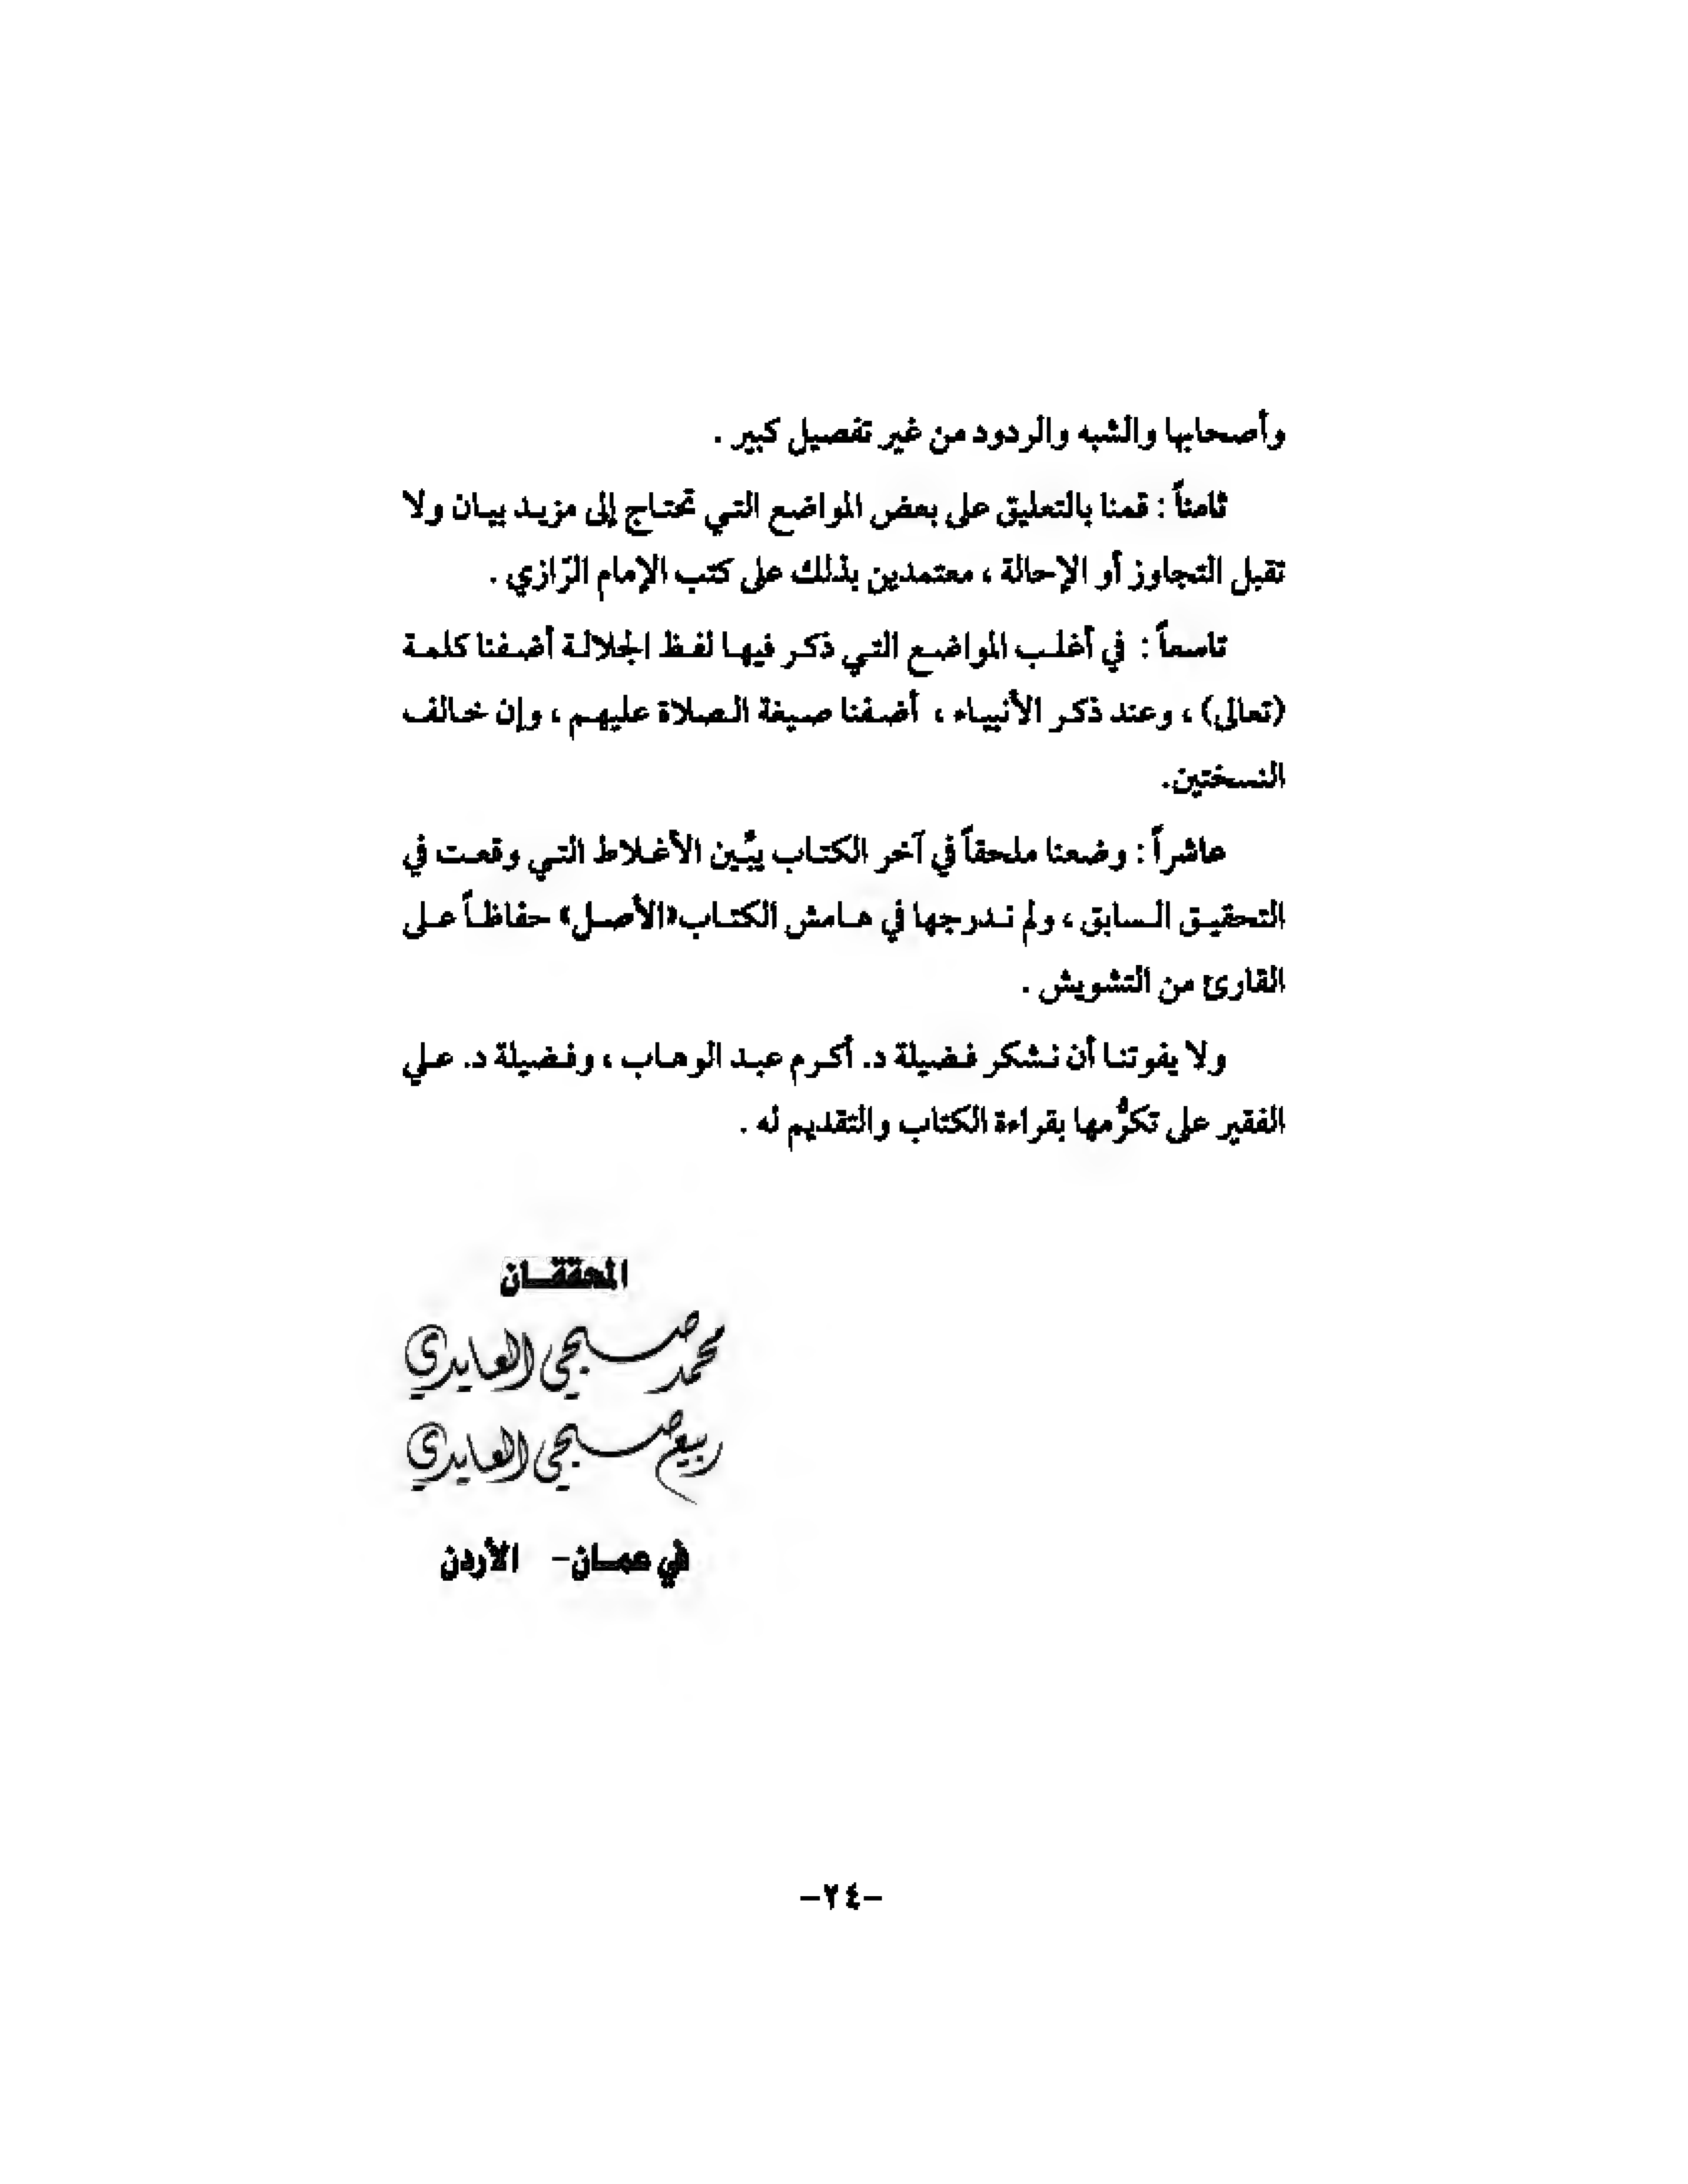 وأصحابها والشبه والردود من غير تفصيل كبير .
ثامناً : قمنا بالتعليق على بعض المواضع التي تحتاج إلى مزيد بيان ولا
تقبل التجاوز أو الإحالة ، معتمدين بذلك على كتب الإمام الرّازي .
تاسعاً : في أغلب المواضع التي ذكر فيها لفظ الجلالة أضفنا كلمة
(تعالى) ، وعند ذكر الأنبياء ، أضفنا صيغة الصلاة عليهم ، وإن خالف
النسختين.
عاشراً : وضعنا ملحقاً في آخر الكتاب يبُّين الأغلاط التي وقعت في
التحقيق السابق ، ولم ندرجها في هامش الكتاب «الأصل» حفاظاً على
القارئ من التشويش .
ولا يفوتنا أن نشكر فضيلة د. أكرم عبد الوهاب ، وفضيلة د. علي
الفقير على تكرُّمها بقراءة الكتاب والتقديم له .
المحققان
محمد صبحي العايدي
ربيع صبحي العايدي
في عمان- الأردن
-٢٤-